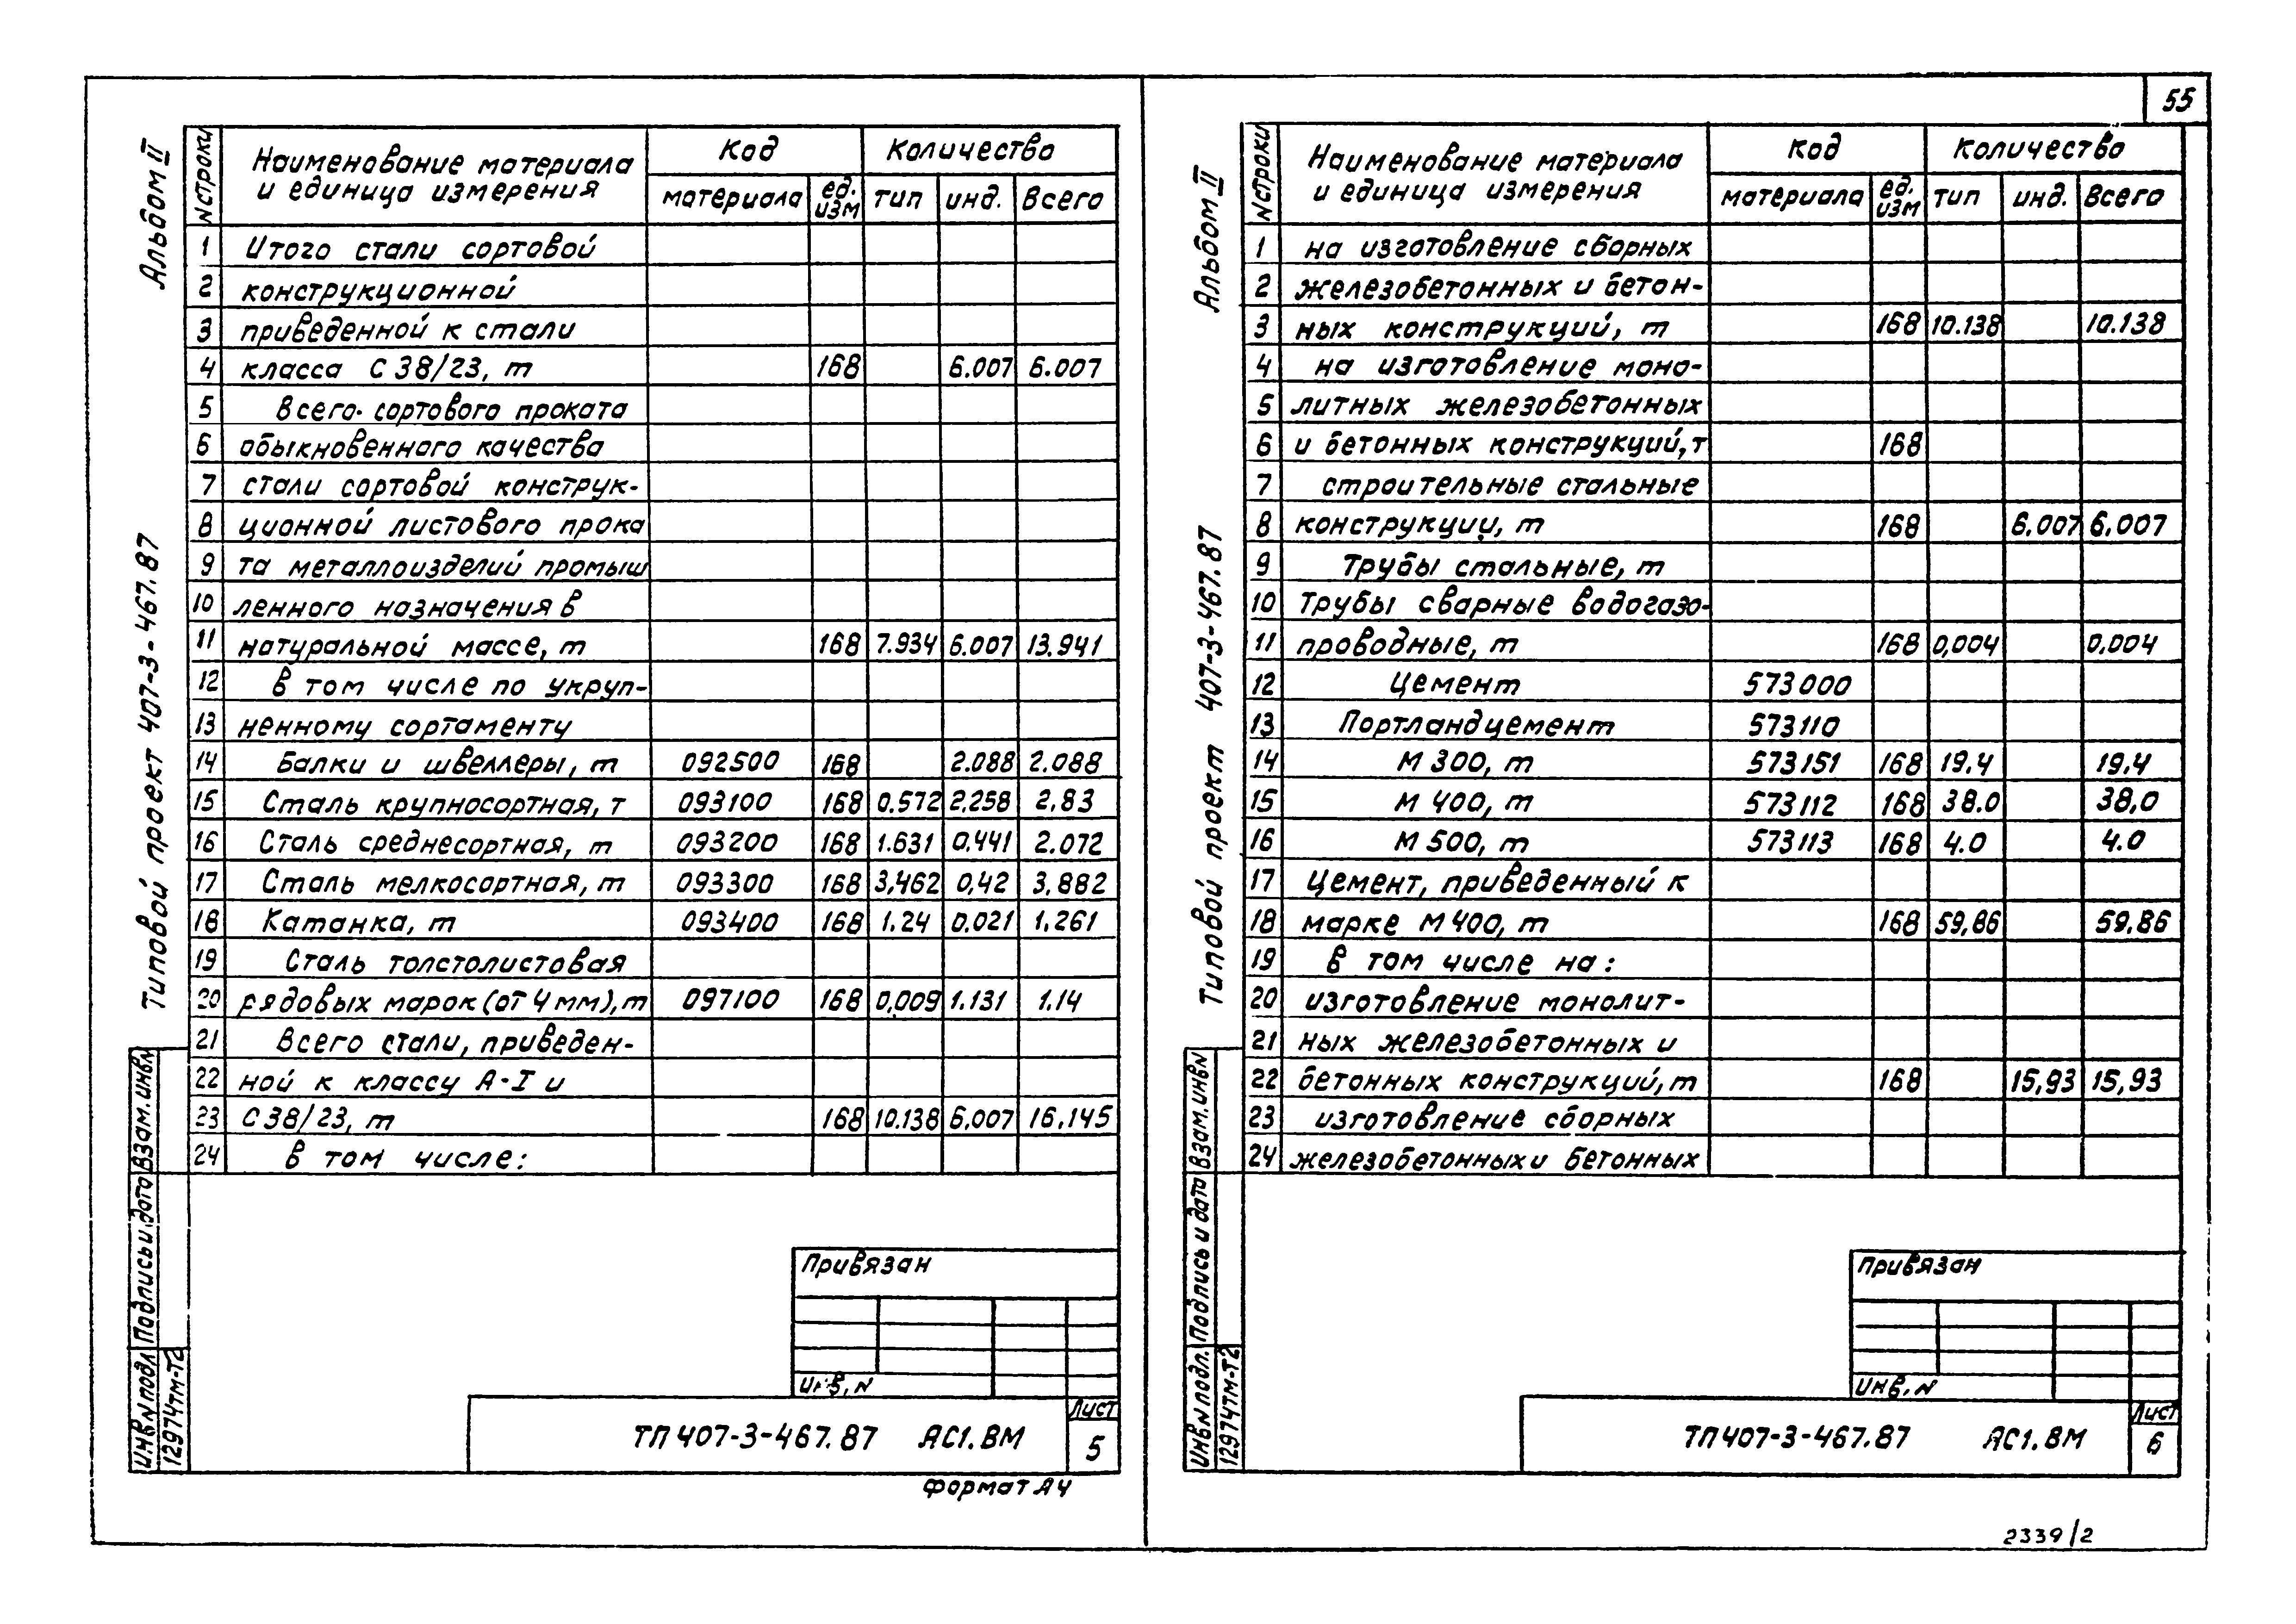 55
Альбом II
Типовой проект 407-3-467.87
N строки | Наименование материала и единица измерения | Код | Количество
материала | ед. изм | тип | инд. | Всего
1 Итого стали сортовой
2 конструкционной
3 приведенной к стали
4 класса С 38/23, т 168 6.007 6.007
5 Всего. сортового проката
6 обыкновенного качества
7 стали сортовой конструк-
8 ционной листового прока
9 та металлоизделий промыш
10 ленного назначения в
11 натуральной массе, т 168 7.934 6.007 13.941
12 в том числе по укруп-
13 ненному сортаменту
14 Балки и швеллеры, т 092500 168 2.088 2.088
15 Сталь крупносортная, т 093100 168 0.572 2.258 2.83
16 Сталь среднесортная, т 093200 168 1.631 0.441 2.072
17 Сталь мелкосортная, т 093300 168 3,462 0,42 3,882
18 Катанка, т 093400 168 1.24 0.021 1.261
19 Сталь толстолистовая
20 рядовых марок (от 4 мм), т 097100 168 0,009 1.131 1.14
21 Всего стали, приведен-
22 ной к классу А-I и
23 С 38/23, т 168 10.138 6,007 16,145
24 в том числе:
Привязан
Инв, N
ТП 407-3-467.87 АС1.ВМ
Лист
5
Формат А4
Инв N подл Подпись и дата Взам. инв N
12974тм-т2
Альбом II
Типовой проект 407-3-467.87
N строки | Наименование материала и единица измерения | Код | Количество
материала | ед. изм | тип | инд. | Всего
1 на изготовление сборных
2 железобетонных и бетон-
3 ных конструкций, т 168 10.138 10.138
4 на изготовление моно-
5 литных железобетонных
6 и бетонных конструкций, т 168
7 строительные стальные
8 конструкции, т 168 6.007 6,007
9 Трубы стальные, т
10 Трубы сварные водогазо-
11 проводные, т 168 0,004 0,004
12 Цемент 573000
13 Портландцемент 573110
14 М 300, т 573151 168 19.4 19.4
15 М 400, т 573112 168 38.0 38,0
16 М 500, т 573113 168 4.0 4.0
17 Цемент, приведенный к
18 марке М 400, т 168 59,86 59.86
19 в том числе на:
20 изготовление монолит-
21 ных железобетонных и
22 бетонных конструкций, т 168 15,93 15,93
23 изготовление сборных
24 железобетонных и бетонных
Привязан
Инв. N
ТП 407-3-467.87 АС1.ВМ
Лист
6
Инв N подл. Подпись и дата Взам. инв N
12974тм-т2
2339/2